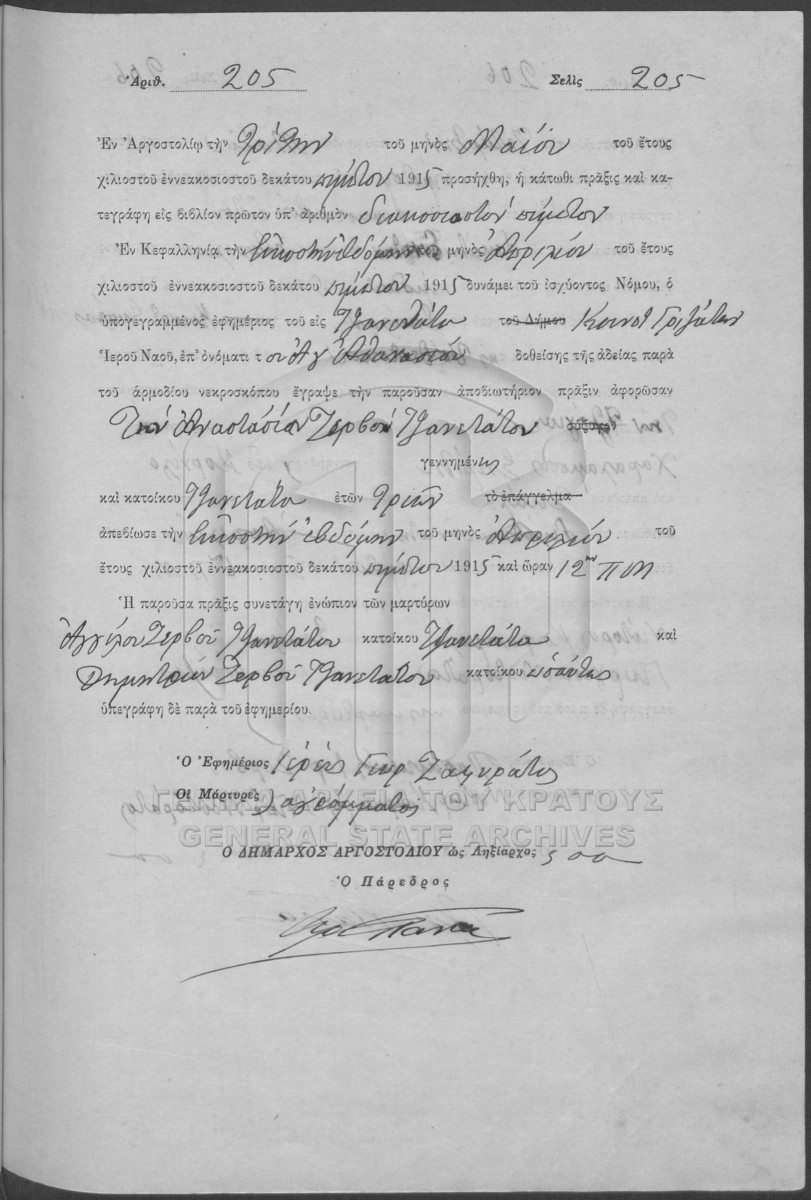 Ἀριθ. 205 Σελὶς 205
Ἐν Ἀργοστολίῳ τὴν Τρίτην τοῦ μηνὸς Μαΐου τοῦ ἔτους
χιλιοστοῦ ἐννεακοσιοστοῦ δεκάτου πέμπτου 1915 προσήχθη, ἡ κάτωθι πρᾶξις καὶ κα-
τεγράφη εἰς βιβλίον πρῶτον ὑπ' ἀριθμὸν διακοσιοστόν πέμπτον
Ἐν Κεφαλληνίᾳ τὴν εἰκοστήν ἑβδόμην τοῦ μηνὸς Ἀπριλίου τοῦ ἔτους
χιλιοστοῦ ἐννεακοσιοστοῦ δεκάτου πέμπτου 1915 δυνάμει τοῦ ἰσχύοντος Νόμου, ὁ
ὑπογεγραμμένος ἐφημέριος τοῦ εἰς Τζανετάτα τοῦ Δήμου Κοινοτ Γριζάτων
Ἱεροῦ Ναοῦ, ἐπ' ὀνόματι τοῦ Ἁγ Ἀθανασίου δοθείσης τῆς ἀδείας παρὰ
τοῦ ἁρμοδίου νεκροσκόπου ἔγραψε τὴν παροῦσαν ἀποβιωτήριον πρᾶξιν ἀφορῶσαν
Τήν Ἀναστασίαν Ζερβού Τζανετάτου σύζυγον
γεννημένης
καὶ κατοίκου Τζανετάτα ἐτῶν Τριῶν τὸ ἐπάγγελμα
ἀπεβίωσε τὴν εἰκοστήν ἑβδόμην τοῦ μηνὸς Ἀπριλίου τοῦ
ἔτους χιλιοστοῦ ἐννεακοσιοστοῦ δεκάτου πέμπτου 1915 καὶ ὥραν 12ην ΠΜ
Ἡ παροῦσα πρᾶξις συνετάγη ἐνώπιον τῶν μαρτύρων
Ἀγγέλου Ζερβού Τζανετάτου κατοίκου Τζανετάτα καὶ
Δημητρίου Ζερβού Τζανετάτου κατοίκου ὡσαύτως
ὑπεγράφη δὲ παρὰ τοῦ ἐφημερίου.
Ὁ Ἐφημέριος Ἱερεύς Γεωρ
Οἱ Μάρτυρες ἀγράμματος
ΓΕΝΙΚΑ ΑΡΧΕΙΑ ΤΟΥ ΚΡΑΤΟΥΣ
GENERAL STATE ARCHIVES
Ὁ ΔΗΜΑΡΧΟΣ ΑΡΓΟΣΤΟΛΙΟΥ ὡς Ληξίαρχος
Ὁ Πάρεδρος